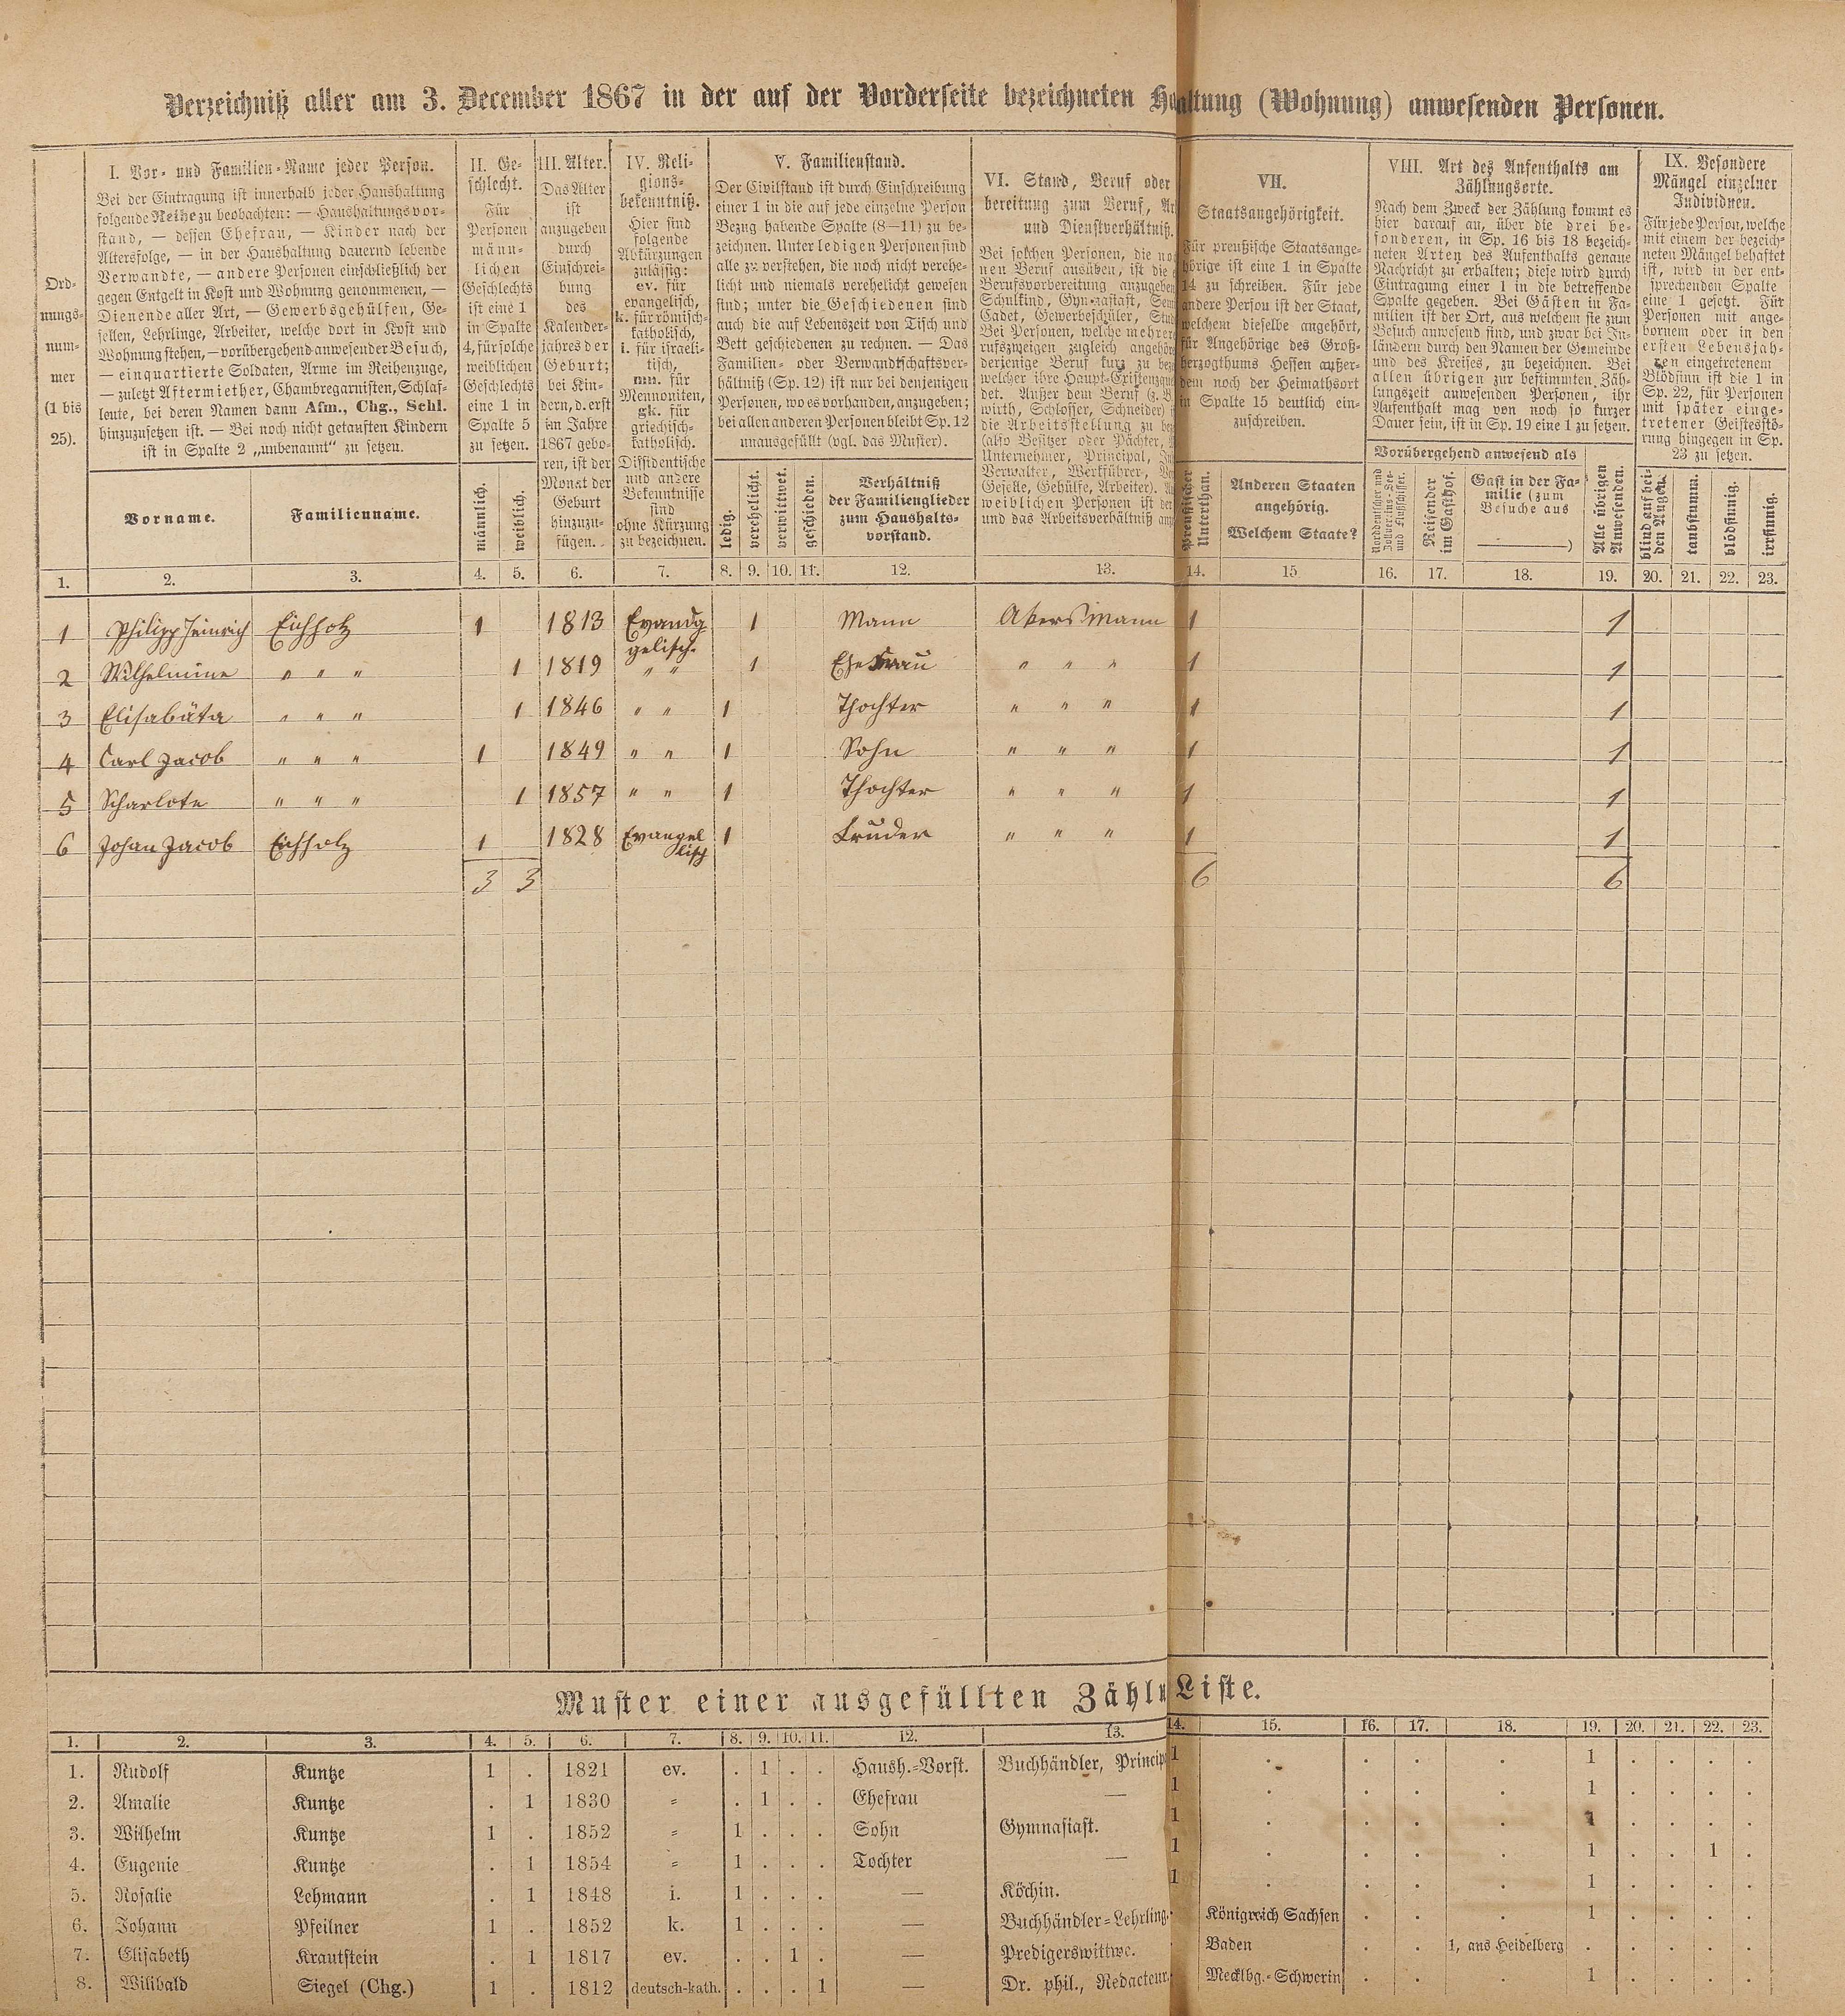 Verzeichniß aller am 3. December 1867 in der auf der Vorderseite bezeichneten Haltung (Wohnung) anwesenden Personen.
Ord-
nungs-
num-
mer
(1 bis
25).
I. Vor- und Familien-Name jeder Person.
Bei der Eintragung ist innerhalb jeder Haushaltung
folgende Reihe zu beobachten: — Haushaltungsvor-
stand, — dessen Ehefrau, — Kinder nach der
Altersfolge, — in der Haushaltung dauernd lebende
Verwandte, — andere Personen einschließlich der
gegen Entgelt in Kost und Wohnung genommenen, —
Dienende aller Art, — Gewerbsgehülfen, Ge-
sellen, Lehrlinge, Arbeiter, welche dort in Kost und
Wohnung stehen, — vorübergehend anwesender Besuch,
— einquartierte Soldaten, Arme im Reihenzuge,
— zuletzt Aftermiether, Chambregarnisten, Schlaf-
leute, bei deren Namen dann Afm., Chg., Schl.
hinzuzusetzen ist. — Bei noch nicht getauften Kindern
ist in Spalte 2 „unbenannt“ zu setzen.
Vorname.
Familienname.
II. Ge-
schlecht.
Für
Personen
männ-
lichen
Geschlechts
ist eine 1
in Spalte
4, für solche
weiblichen
Geschlechts
eine 1 in
Spalte 5
zu setzen.
männlich.
weiblich.
III. Alter.
Das Alter
ist
anzugeben
durch
Einschrei-
bung
des
Kalender-
jahres der
Geburt;
bei Kin-
dern, d. erst
im Jahre
1867 gebo-
ren, ist der
Monat der
Geburt
hinzuzu-
fügen.
IV. Reli-
gions-
bekenntniß.
Hier sind
folgende
Abkürzungen
zulässig:
ev. für
evangelisch,
k. für römisch-
katholisch,
i. für israeli-
tisch,
mn. für
Mennoniten,
gk. für
griechisch-
katholisch.
Dissidentische
und andere
Bekenntnisse
sind
ohne Kürzung
zu bezeichnen.
V. Familienstand.
Der Civilstand ist durch Einschreibung
einer 1 in die auf jede einzelne Person
Bezug habende Spalte (8—11) zu be-
zeichnen. Unter ledigen Personen sind
alle zu verstehen, die noch nicht verehe-
licht und niemals verehelicht gewesen
sind; unter die Geschiedenen sind
auch die auf Lebenszeit von Tisch und
Bett geschiedenen zu rechnen. — Das
Familien- oder Verwandtschaftsver-
hältniß (Sp. 12) ist nur bei denjenigen
Personen, wo es vorhanden, anzugeben;
bei allen anderen Personen bleibt Sp. 12
unausgefüllt (vgl. das Muster).
ledig.
verehelicht.
verwittwet.
geschieden.
Verhältniß
der Familienglieder
zum Haushalts-
vorstand.
VI. Stand, Beruf oder
bereitung zum Beruf,
und Dienstverhältniß.
Bei solchen Personen, die
nen Beruf ausüben, ist die
Berufsvorbereitung anzugeben
Schulkind, Gymnasiast,
Cadet, Gewerbeschüler,
Bei Personen, welche mehrere
rufszweigen zugleich
derjenige Beruf kurz zu
welcher ihre
det. Außer dem Beruf (z. B.
wirth, Schlosser, Schneider)
die Arbeitsstellung zu
(also Besitzer oder Pächter,
Unternehmer, Principal,
Verwalter, Werkführer,
Geselle, Gehülfe, Arbeiter).
weiblichen Personen ist der
und das Arbeitsverhältniß
VII.
Staatsangehörigkeit.
Für preußische Staatsange-
hörige ist eine 1 in Spalte
14 zu schreiben. Für jede
andere Person ist der Staat,
welchem dieselbe angehört,
für Angehörige des Groß-
herzogthums Hessen außer-
dem noch der Heimathsort
in Spalte 15 deutlich ein-
zuschreiben.
Preußischer
Unterthan.
Anderen Staaten
angehörig.
Welchem Staate?
VIII. Art des Aufenthalts am
Zählungsorte.
Nach dem Zweck der Zählung kommt es
hier darauf an, über die drei be-
sonderen, in Sp. 16 bis 18 bezeich-
neten Arten des Aufenthalts genaue
Nachricht zu erhalten; diese wird durch
Eintragung einer 1 in die betreffende
Spalte gegeben. Bei Gästen in Fa-
milien ist der Ort, aus welchem sie zum
Besuch anwesend sind, und zwar bei In-
ländern durch den Namen der Gemeinde
und des Kreises, zu bezeichnen. Bei
allen übrigen zur bestimmten Zäh-
lungszeit anwesenden Personen, ihr
Aufenthalt mag von noch so kurzer
Dauer sein, ist in Sp. 19 eine 1 zu setzen.
Vorübergehend anwesend als
Norddeutscher und
Zollvereins-See-
und Flußschiffer.
Reisender
im Gasthof.
Gast in der Fa-
milie (zum
Besuche aus
)
Alle übrigen
Anwesenden.
IX. Besondere
Mängel einzelner
Individuen.
Für jede Person, welche
mit einem der bezeich-
neten Mängel behaftet
ist, wird in der ent-
sprechenden Spalte
eine 1 gesetzt. Für
Personen mit ange-
bornem oder in den
ersten Lebensjah-
ren eingetretenem
Blödsinn ist die 1 in
Sp. 22, für Personen
mit später einge-
tretener Geistesstö-
rung hingegen in Sp.
23 zu setzen.
blind auf bei-
den Augen.
taubstumm.
blödsinnig.
irrsinnig.
1. 2. 3. 4. 5. 6. 7. 8. 9. 10. 11. 12. 13. 14. 15 16. 17. 18. 19. 20. 21. 22. 23.
1 Philipp Heinrich Eichholz 1 1813 Evandg 1 Mann Akersmann 1 1
gelisch.
2 Wilhelmine " " " 1 1819 " " 1 Ehefrau " " " 1 1
3 Elisabäta " " " 1 1846 " " 1 Thochter " " " 1 1
4 Carl Jacob " " " 1 1849 " " 1 Sohn " " " 1 1
5 Scharlote " " " 1 1857 " " 1 Thochter " " " 1 1
6 Johan Jacob Eichholz 1 1828 Evangel 1 Bruder " " " 1 1
lisch
3 3 6 6
Muster einer ausgefüllten Zähl Liste.
1. 2. 3. 4. 5. 6. 7. 8. 9. 10. 11. 12. 13. 14. 15. 16. 17. 18. 19. 20. 21. 22. 23.
1. Rudolf Kuntze 1 . 1821 ev. . 1 . . Haush.-Vorst. Buchhändler, Princip 1 . . . . 1 . . . .
2. Amalie Kuntze . 1 1830 " . 1 . . Ehefrau — 1 . . . . 1 . . . .
3. Wilhelm Kuntze 1 . 1852 " 1 . . . Sohn Gymnasiast. 1 . . . . 1 . . . .
4. Eugenie Kuntze . 1 1854 " 1 . . . Tochter — 1 . . . . 1 . . 1 .
5. Rosalie Lehmann . 1 1848 i. 1 . . . — Köchin. 1 . . . . 1 . . . .
6. Johann Pfeilner 1 . 1852 k. 1 . . . — Buchhändler-Lehrling. . Königreich Sachsen . . . 1 . . . .
7. Elisabeth Krautstein . 1 1817 ev. . . 1 . — Predigerswittwe. . Baden . . 1, aus Heidelberg . . . . .
8. Wilibald Siegel (Chg.) 1 . 1812 deutsch-kath. . . . 1 — Dr. phil., Redacteur. Mecklbg.-Schwerin . . . 1 . . . .